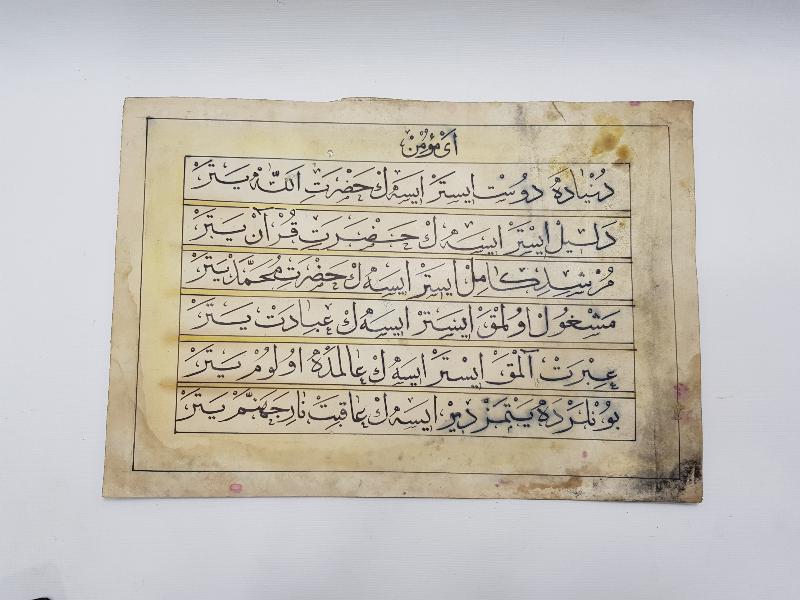 اى مؤمن
دنياده دوست ايستر ايسه ك حضرت الله يتر
دليل ايستر ايسه ك حضرت قرآن يتر
مرشد كامل ايستر ايسه ك حضرت محمد يتر
مشغول اولمق ايستر ايسه ك عبادت يتر
عبرت آلمق ايستر ايسه ك عالمده اولوم يتر
بونلرده يتمز دير ايسه ك عاقبت نار جهنم يتر